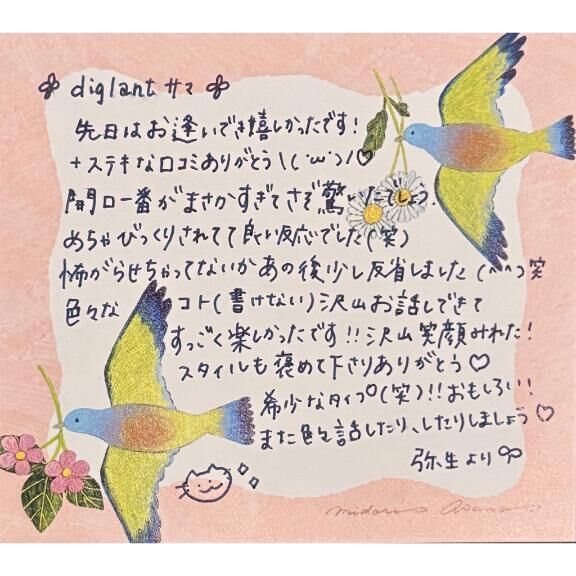 diglant サマ
先日はお逢いでき嬉しかったです!
+ステキな口コミありがとう\(･ω･)/♡
開口一番がまさかすぎてさぞ驚いたでしょう.
めちゃびっくりされてて良い反応でした(笑)
怖がらせちゃってないかあの後少し反省しました(^^)笑
色々な コト(書けない)沢山お話しできて
すっごく楽しかったです!!沢山笑顔みれた!
スタイルも褒めて下さりありがとう♡
希少なタイプ(笑)!!おもしろい!!
また色々話したり、したりしましょう♡
弥生より